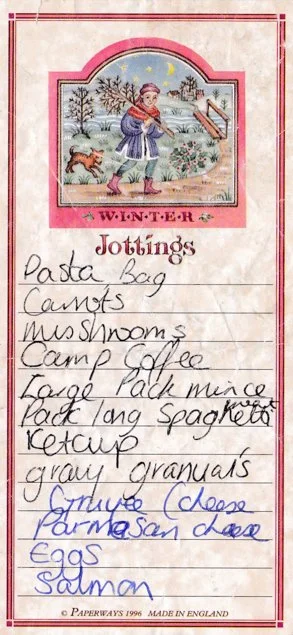 WINTER
Jottings
Pasta, Bag
Carrots
musshrooms
Camp Coffee
Large Pack mince meat
Pack long Spaghetti
Ketcup
gravy granual's
Gruyee (cheese
Parmasan cheese
Eggs
Salmon
© PAPERWAYS 1996 MADE IN ENGLAND